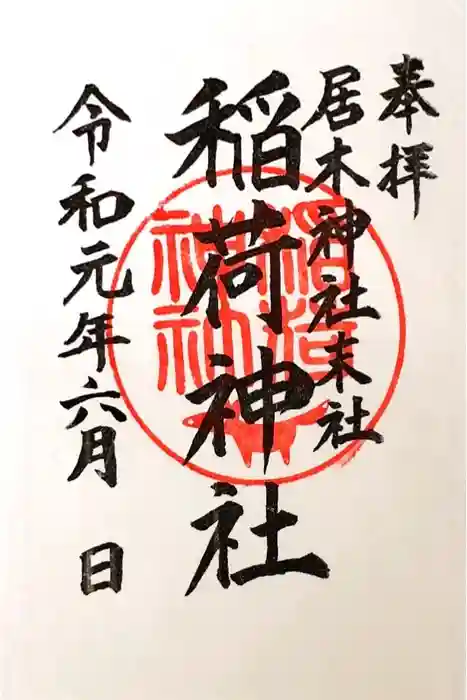 奉拝
居木神社末社
稲荷神社
令和元年六月 日